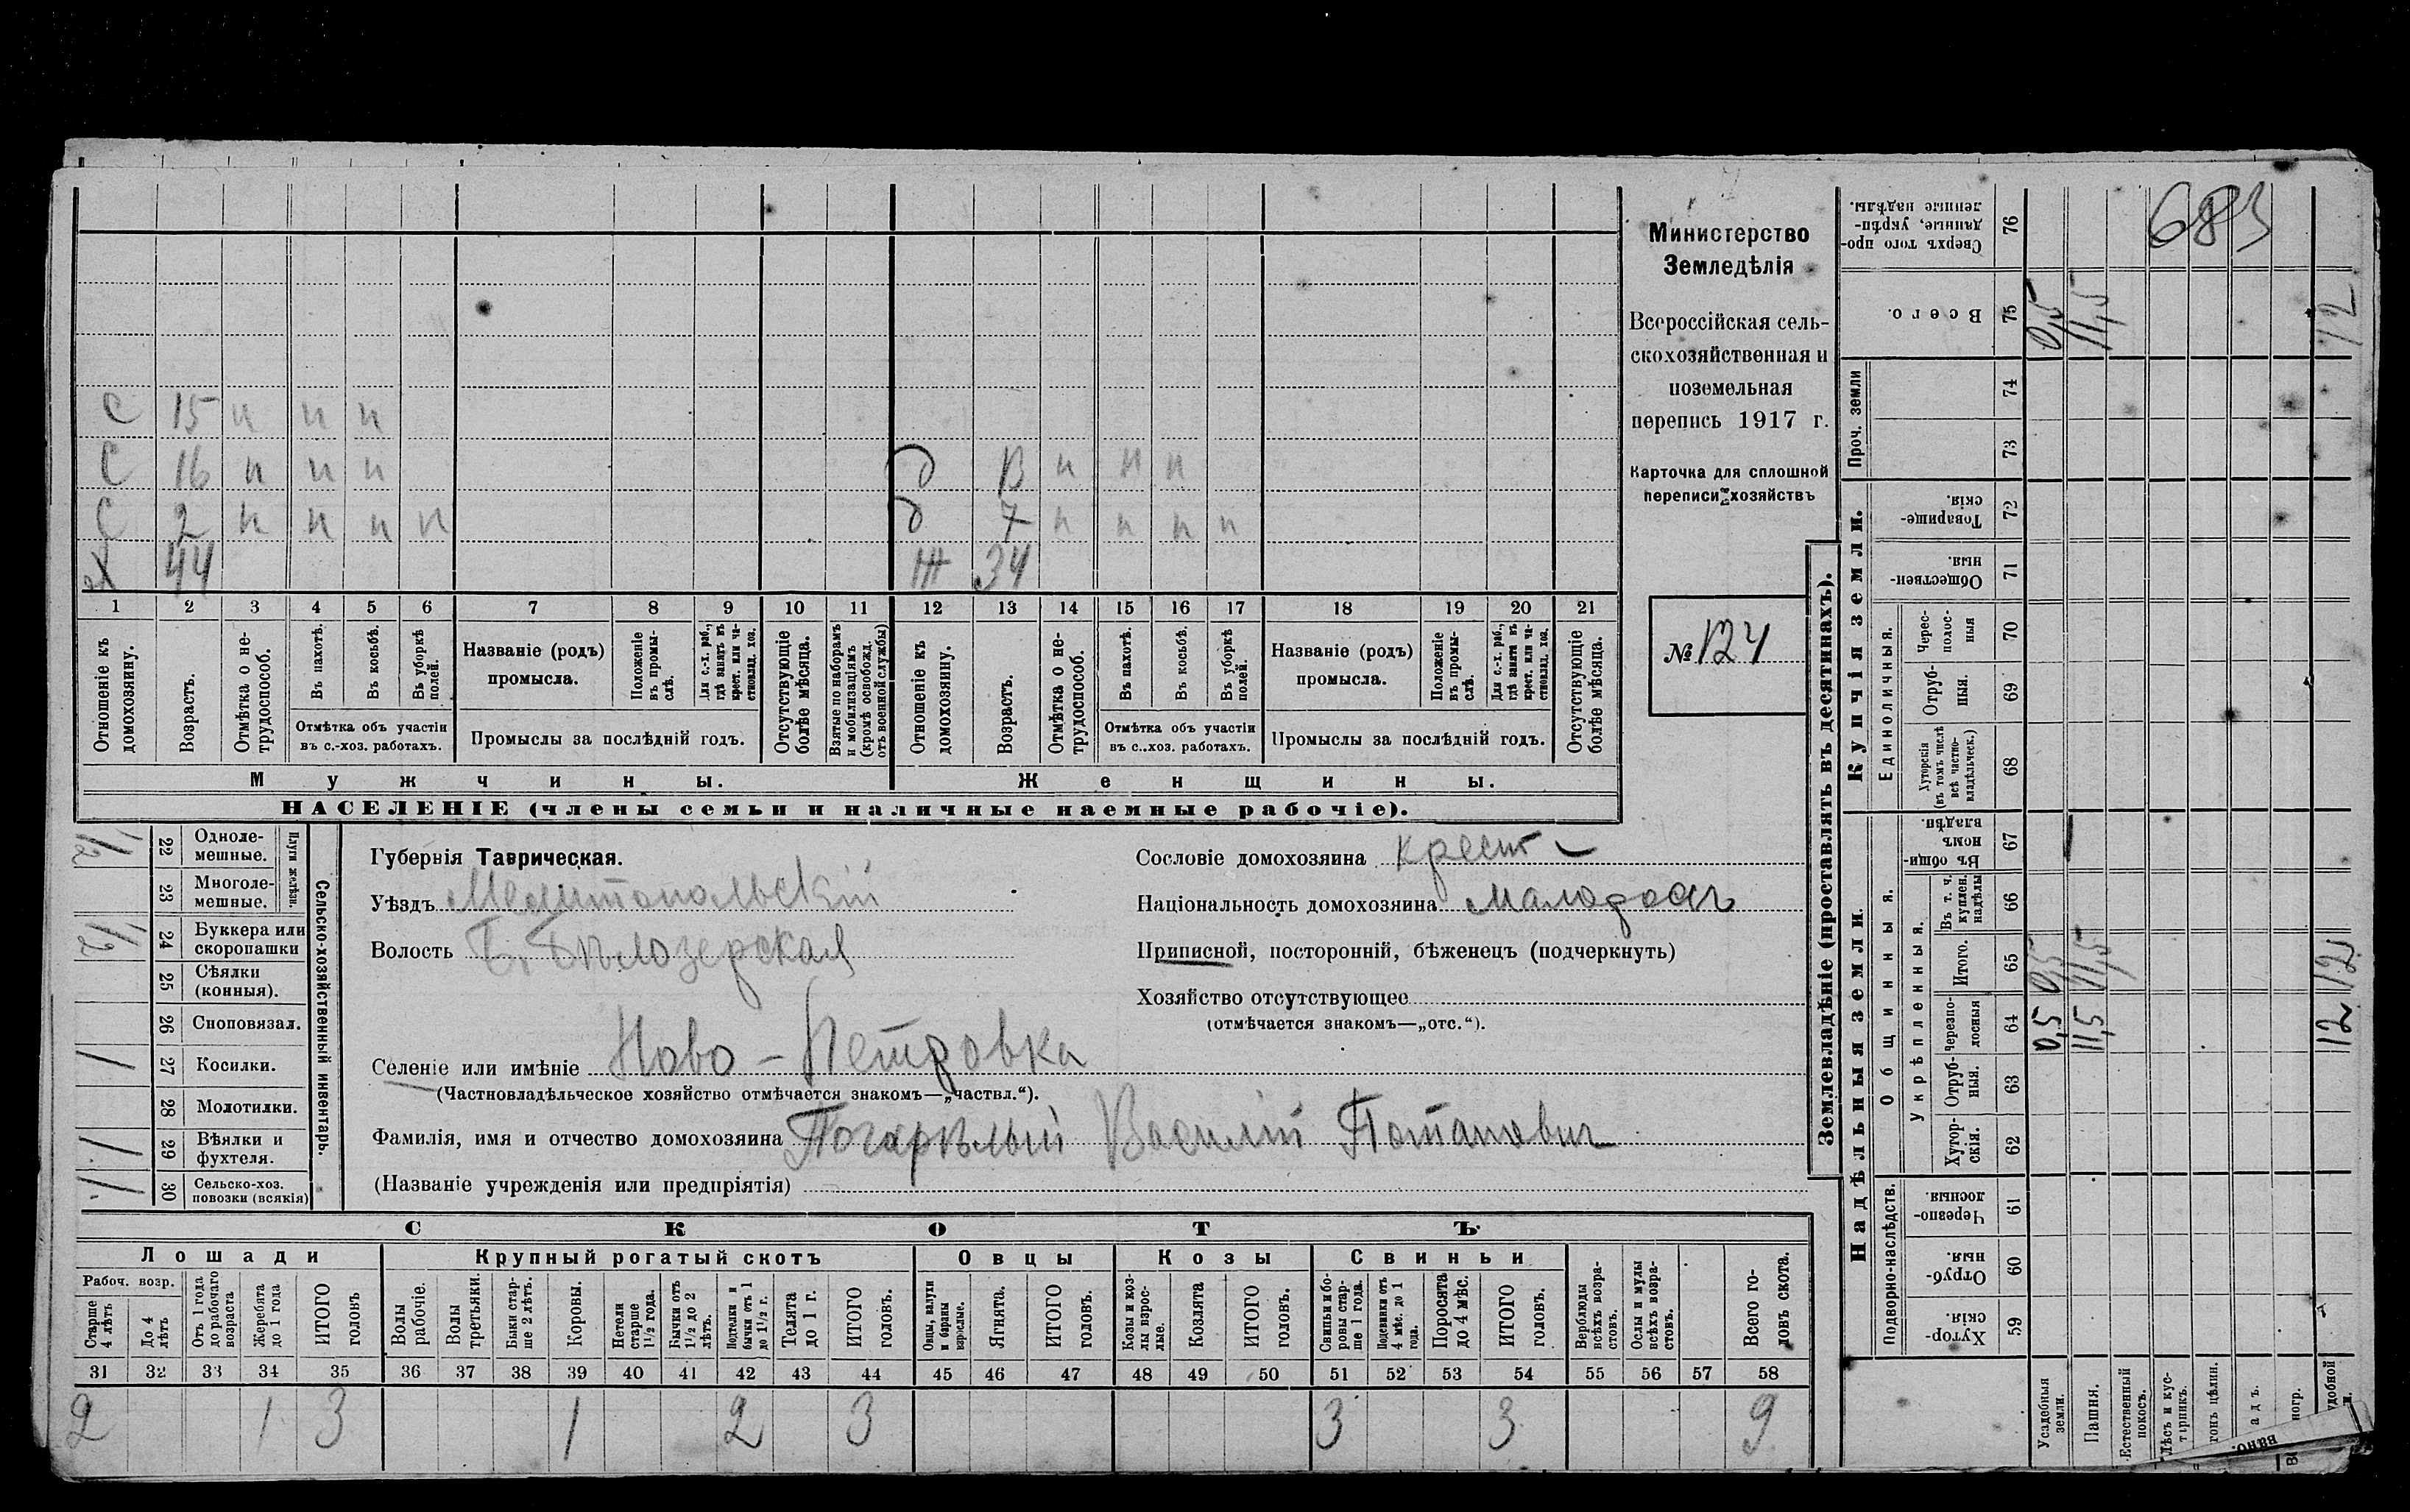 С 15 н н н
С 16 н н н
д В н н н
С 2 н н н н
д 7 н н н н
Х 44
Ж 34
1 2 3 4 5 6 7 8 9 10 11 12 13 14 15 16 17 18 19 20 21
Отношеніе къ домохозяину.
Возрастъ.
Отмѣтка о не-трудоспособ.
Въ пахотѣ.
Въ косьбѣ.
Въ уборкѣ полей.
Отмѣтка объ участіи
въ с.-хоз. работахъ.
Названіе (родъ)
промысла.
Положеніе въ промы-слѣ.
Для с.-х. раб., гдѣ занятъ въ крест. или ча-стновлад. хоз.
Промыслы за послѣдній годъ.
Отсутствующіе болѣе мѣсяца.
Взятые по наборамъ и мобилизаціямъ (кромѣ освобожд. отъ военной службы)
Отношеніе къ домохозяину.
Возрастъ.
Отмѣтка о не-трудоспособ.
Въ пахотѣ.
Въ косьбѣ.
Въ уборкѣ полей.
Отмѣтка объ участіи
въ с..хоз. работахъ.
Названіе (родъ)
промысла.
Положеніе въ промы-слѣ.
Для с.-х. раб., гдѣ занята въ крест. или ча-стновлад. хоз.
Промыслы за послѣдній годъ.
Отсутствующіе болѣе мѣсяца.
Мужчины.
Женщины.
НАСЕЛЕНІЕ (члены семьи и наличные наемные рабочіе).
Министерство
Земледѣлія
Всероссійская сель-
скохозяйственная и
поземельная
перепись 1917 г.
Карточка для сплошной
переписи хозяйствъ
№ 124
Сельско-хозяйственный инвентарь.
Плуги желѣзн.
22 Одноле-
мешные.
1/2
23 Многоле-
мешные.
24 Буккера или
скоропашки
1/2
25 Сѣялки
(конныя).
26 Сноповязал.
27 Косилки.
1
28 Молотилки.
29 Вѣялки и
фухтеля.
1
30 Сельско-хоз.
повозки (всякія)
1.
Губернія Таврическая.
Уѣздъ Мелитопольскій
Волость Б. Бѣлозерская
Селеніе или имѣніе Ново-Петровка
(Частновладѣльческое хозяйство отмѣчается знакомъ—„частвл.“).
Фамилія, имя и отчество домохозяина Погарѣлый Василій Потапович
(Названіе учрежденія или предпріятія)
Сословіе домохозяина крест
Національность домохозяина малоросъ
Приписной, посторонній, бѣженецъ (подчеркнуть)
Хозяйство отсутствующее
(отмѣчается знакомъ—„отс.“).
СКОТЪ
Лошади
Крупный рогатый скотъ
Овцы
Козы
Свиньи
Рабоч. возр.
Старше 4 лѣтъ
До 4 лѣтъ
Отъ 1 года до рабочаго возраста
Жеребята до 1 года
ИТОГО головъ
Волы рабочіе.
Волы третьяки.
Быки стар-ше 2 лѣтъ.
Коровы.
Нетели старше 1 1/2 года.
Бычки отъ 1 1/2 до 2 лѣтъ.
Подтелки и бычки отъ 1 до 1 1/2 г.
Телята до 1 г.
ИТОГО головъ.
Овцы, валухи и бараны взрослые.
Ягнята.
ИТОГО головъ.
Козы и коз-лы взрос-лые.
Козлята
ИТОГО головъ.
Свиньи и бо-ровы стар-ше 1 года.
Подсвинки отъ 4 мѣс. до 1 года.
Поросята до 4 мѣс.
ИТОГО головъ.
Верблюды всѣхъ возра-стовъ.
Ослы и мулы всѣхъ возра-стовъ.
Всего го-ловъ скота.
31 32 33 34 35 36 37 38 39 40 41 42 43 44 45 46 47 48 49 50 51 52 53 54 55 56 57 58
2 1 3 1 2 3 3 3 9
Землевладѣніе (проставлять въ десятинахъ).
Надѣльныя земли.
Купчія земли.
Подворно-наслѣдств.
Общинныя.
Укрѣпленныя.
Единоличныя.
Проч. земли
Хутор-скія. 59
Отруб-ныя. 60
Черезпо-лосныя. 61
Хутор-скія. 62
Отруб-ныя. 63
Черезпо-лосныя 64
Итого. 65
Въ т. ч. куплен. надѣлы 66
Въ общи-номъ владѣн. 67
Хуторскія (въ томъ числѣ всѣ частно-владѣльческ.) 68
Отруб-ныя. 69
Черес-полос-ныя 70
Обществен-ныя. 71
Товарище-скія. 72
73
74
Всего. 75
Сверхъ того про-данные, укрѣп-ленные надѣлы. 76
Усадебныя земли.
0,5 0,5 0,5
Пашня.
11,5 11,5 11,5
Естественный покосъ.
Лѣсъ и кус-тарникъ.
удобной
12 12 12
683